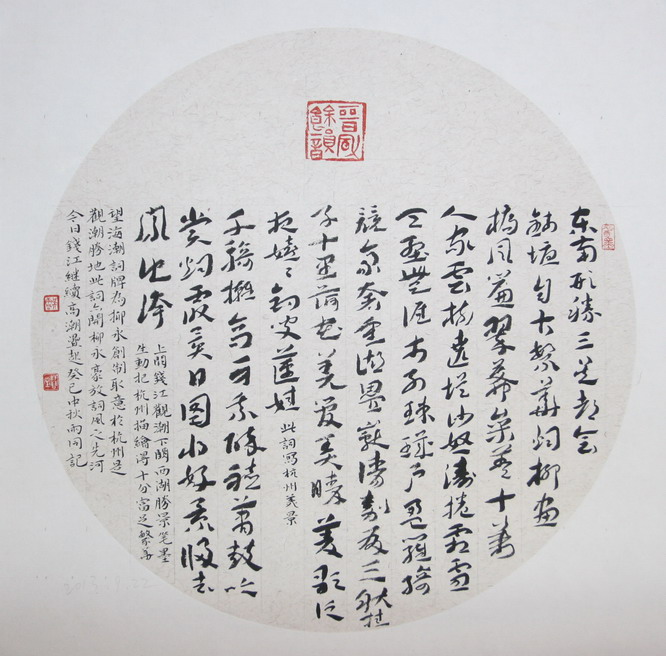 晉風餘韻
东南形勝三吴都会
錢塘自古繁華烟柳畫
橋风簾翠幕参差十萬
人家雲樹遶堤沙怒濤捲霜雪
天塹無涯市列珠璣户盈羅綺
競豪奢重湖疊巘清嘉有三秋桂
子十里荷花羌管弄晴菱歌泛
夜嬉〻釣叟蓮娃 此詞寫杭州美景
千騎擁高牙乘醉聽簫鼓吟
賞烟霞異日圖将好景歸去
鳳池誇
上闋錢江觀潮下闋西湖勝景笔墨
生動把杭州描繪得十分富足繁華
望海潮詞牌為柳永創制取意於杭州是
觀潮勝地此詞亦開柳永豪放詞風之先河
今日錢江继續高潮疊起癸巳中秋雨同記